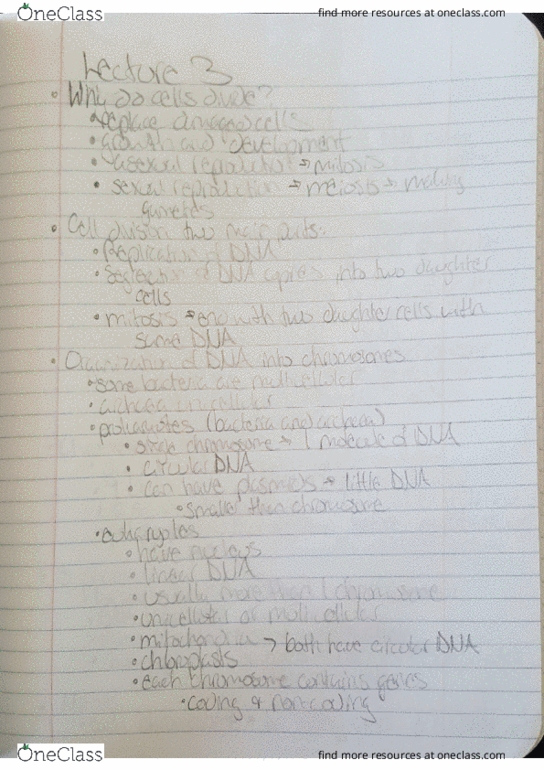 OneClass find more resources at oneclass.com
Lecture 3
• Why do cells divide?
• replace damaged cells
• growth and development
• asexual reproduction → mitosis
• sexual reproduction → meiosis → making
gametes
• Cell division two main parts:
• Replication of DNA
• Segregation of DNA copies into two daughter
cells
• mitosis → end with two daughter cells with
same DNA
• Organization of DNA into chromosomes
• some bacteria are multicellular
• archaea unicellular
• prokaryotes (bacteria and archaea)
• single chromosome → 1 molecule of DNA
• circular DNA
• can have plasmids → little DNA
• smaller than chromosome
• eukaryotes
• have nucleus
• linear DNA
• usually more than 1 chromosome
• unicellular or multicellular
• mitochondria > both have circular DNA
• chloroplasts
• each chromosome contains genes
• coding & non-coding
OneClass find more resources at oneclass.com